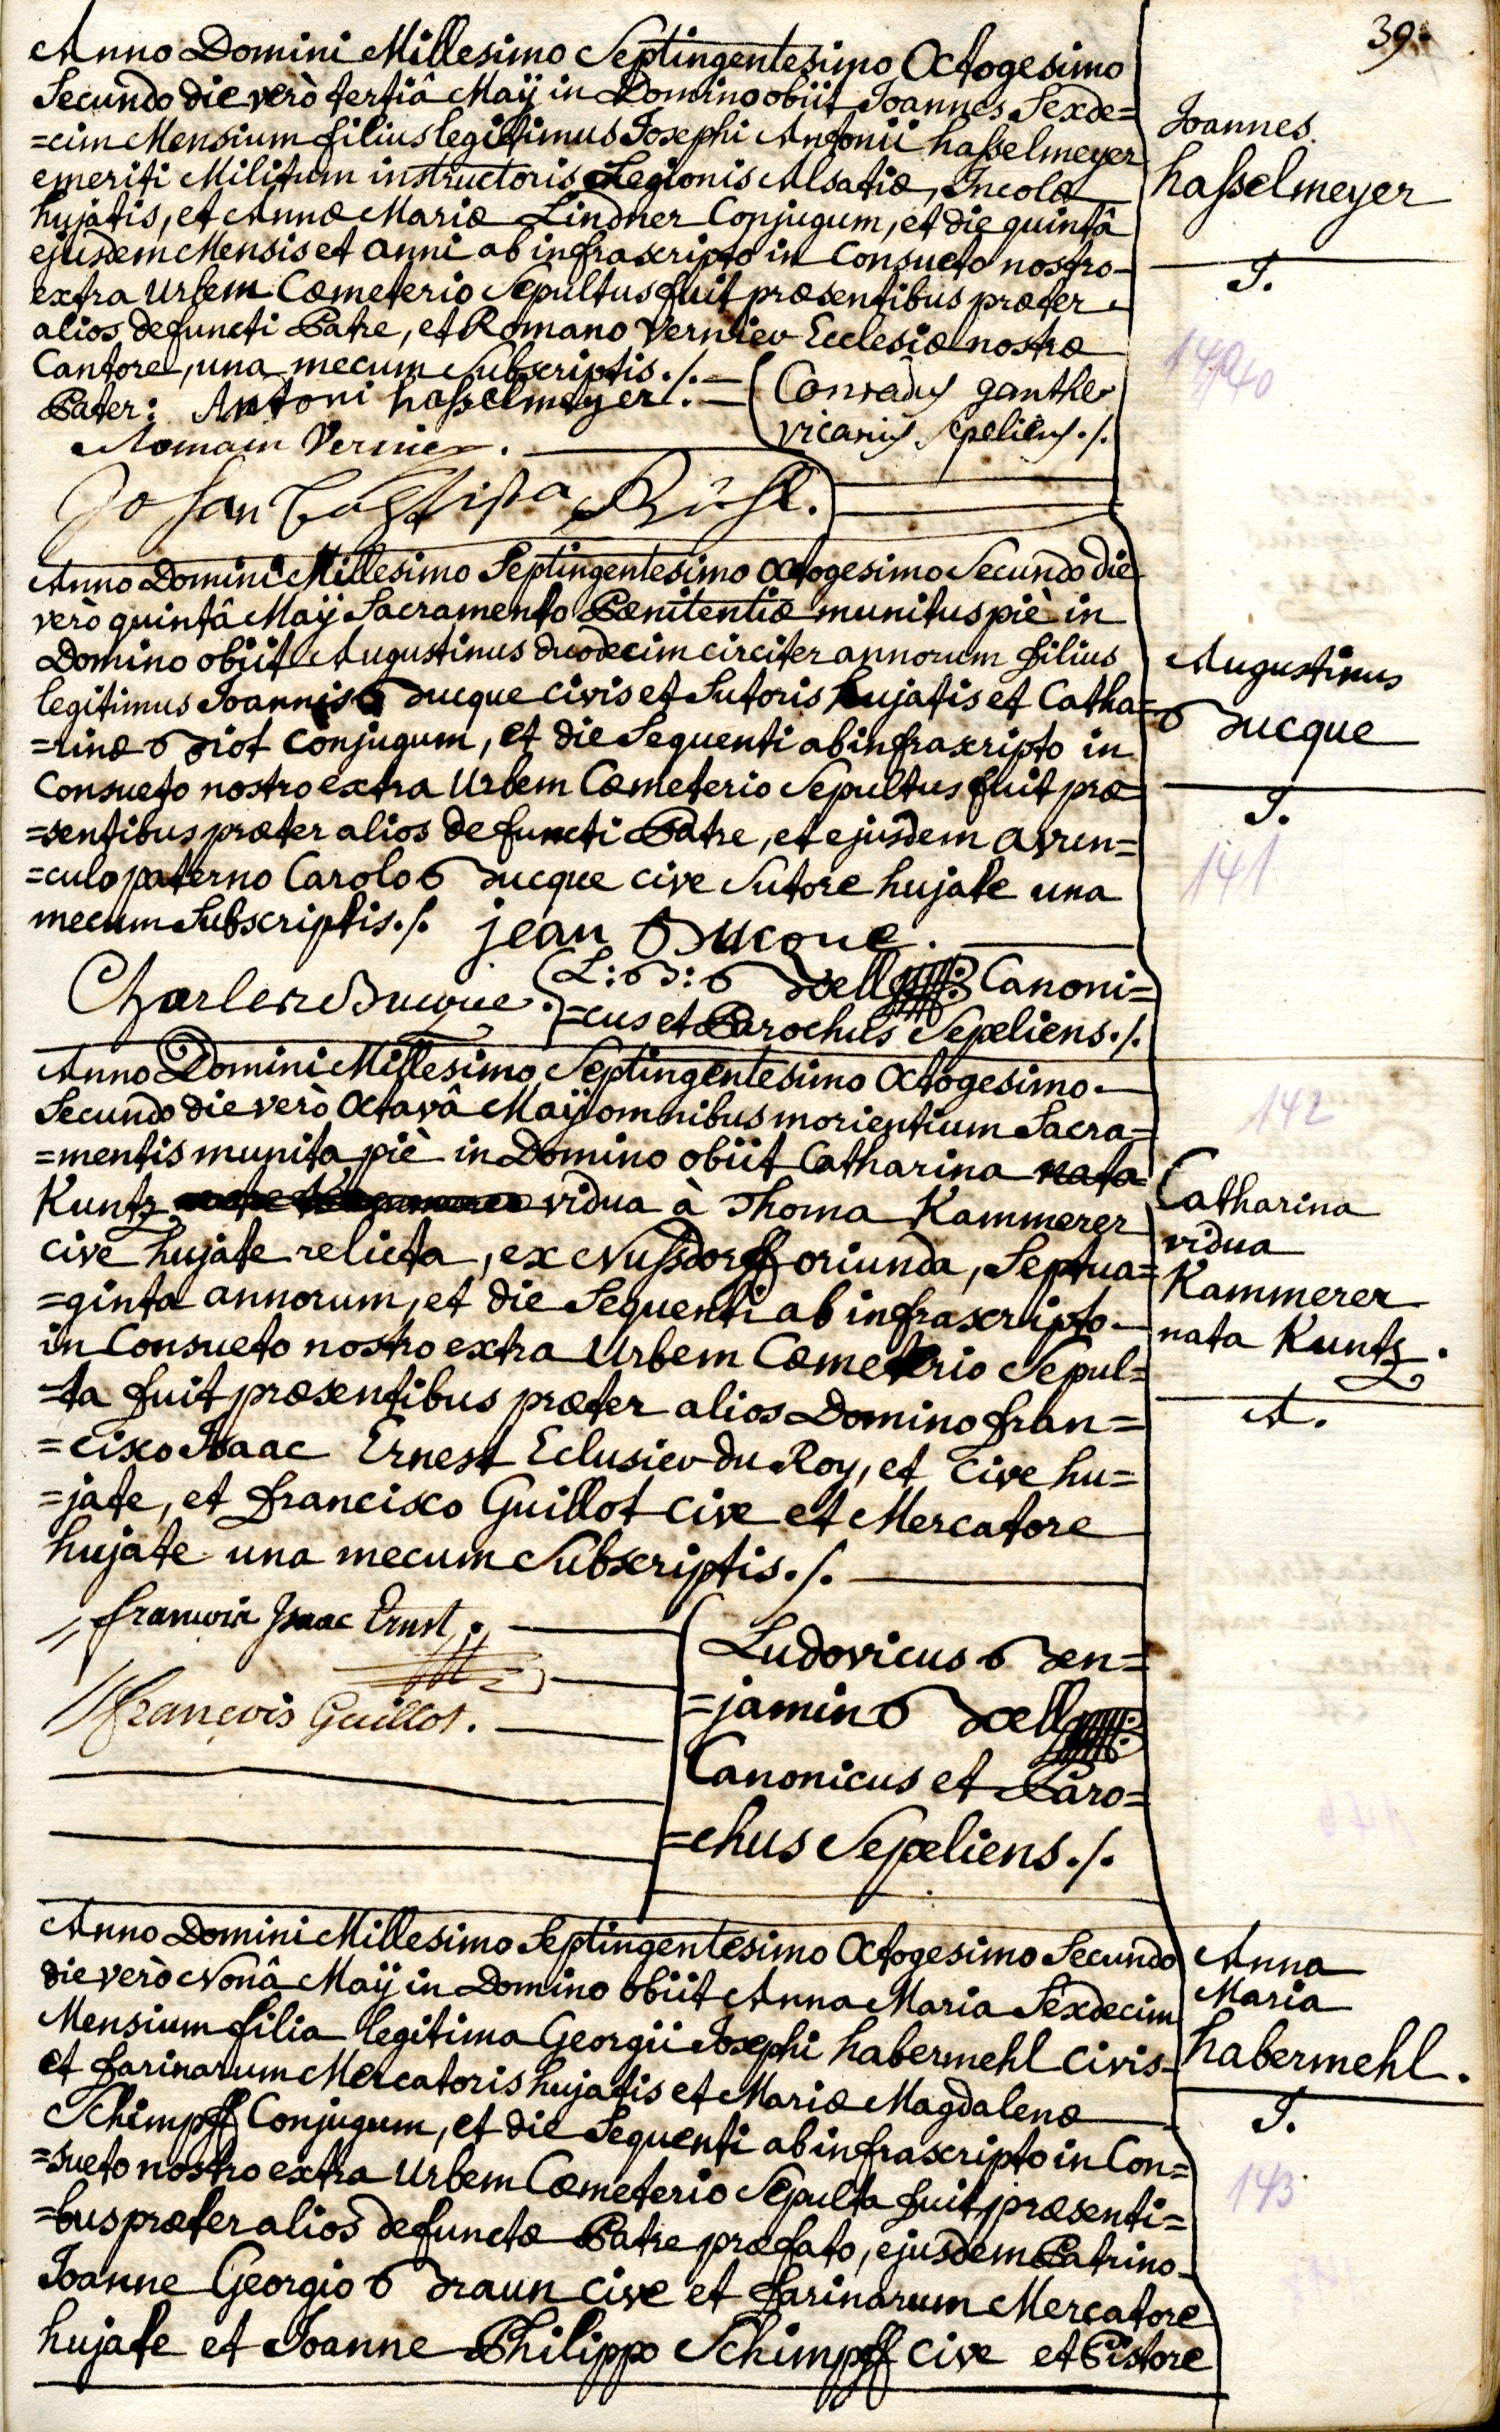 39.
Anno Domini Millesimo Septingentesimo Octogesimo
Secundo die verò tertiâ Maÿ in Domino obiit Joannes Sexde=
=cim Mensium filius legitimus Josephi Antonii hasselmeyer
emeriti Militum instructoris Legionis Alsatiæ, Incolæ
hujatis, et Annæ Mariæ Lindner Conjugum, et die quintâ
ejusdem Mensis et anni ab infrascripto in Consueto nostro
extra Urbem Cœmeterio Sepultus fuit præsentibus præter
alios defuncti Patre, et Romano Vernier Ecclesiæ nostræ
Cantore, una mecum Subscriptis ./.
Pater: Antoni hasselmeyer
Conradus ganther
vicarius Sepeliens ./.
Romain Vernier.
Johan Baptista Bühl.
Joannes
hasselmeyer
J.
140
Anno Domini Millesimo Septingentesimo Octogesimo Secundo die
verò quintâ Maÿ Sacramento Pœnitentiæ munitus piè in
Domino obiit Augustinus duodecim circiter annorum filius
legitimus Joannis Bucque civis et Sutoris hujatis et Catha=
=rinæ Biot Conjugum, et die Sequenti ab infrascripto in
Consueto nostro extra Urbem Cœmeterio Sepultus fuit præ
=sentibus præter alios defuncti Patre, et ejusdem avun=
=culo paterno Carolo Bucque cive Sutore hujate una
mecum Subscriptis ./. jean Bucque.
Charles Bucque.
L: B: Boell Canoni=
=cus et Parochus Sepeliens ./.
Augustinus
Bucque
J.
141
Anno Domini Millesimo Septingentesimo Octogesimo
Secundo die verò Octavâ Maÿ omnibus morientium Sacra=
=mentis munita piè in Domino obiit Catharina nata
Kuntz vidua à Thoma Kammerer
cive hujate relicta, ex Nussdorff oriunda, Septua=
=ginta annorum, et die Sequenti ab infrascripto
in Consueto nostro extra Urbem Cœmeterio Sepul=
=ta fuit præsentibus præter alios Domino fran=
=cisco Isaac Ernest Eclusier du Roy, et Cive hu=
=jate, et francisco Guillot Cive et Mercatore
hujate una mecum Subscriptis ./.
francois Isaac Ernst
françois Guillot.
Ludovicus Ben=
=jamin Boell
Canonicus et Paro=
=chus Sepeliens ./.
142
Catharina
vidua
Kammerer
nata Kuntz.
A.
Anno Domini Millesimo Septingentesimo Octogesimo Secundo
die verò Nonâ Maÿ in Domino obiit Anna Maria Sexdecim
Mensium filia legitima Georgii Josephi habermehl civis
et farinarum Mercatoris hujatis et Mariæ Magdalenæ
Schimpff Conjugum, et die Sequenti ab infrascripto in Con=
=sueto nostro extra Urbem Cœmeterio Sepulta fuit præsenti=
=bus præter alios defunctæ Patre præfato, ejusdem Patrino
Joanne Georgio Braun cive et farinarum Mercatore
hujate et Joanne Philippo Schimpff cive et Pistore
Anna
Maria
habermehl.
J.
143